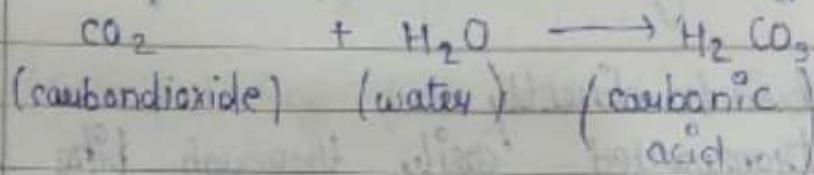 CO2 + H2O ⟶ H2 CO3
(carbondioxide) (water) (carbonic
acid)